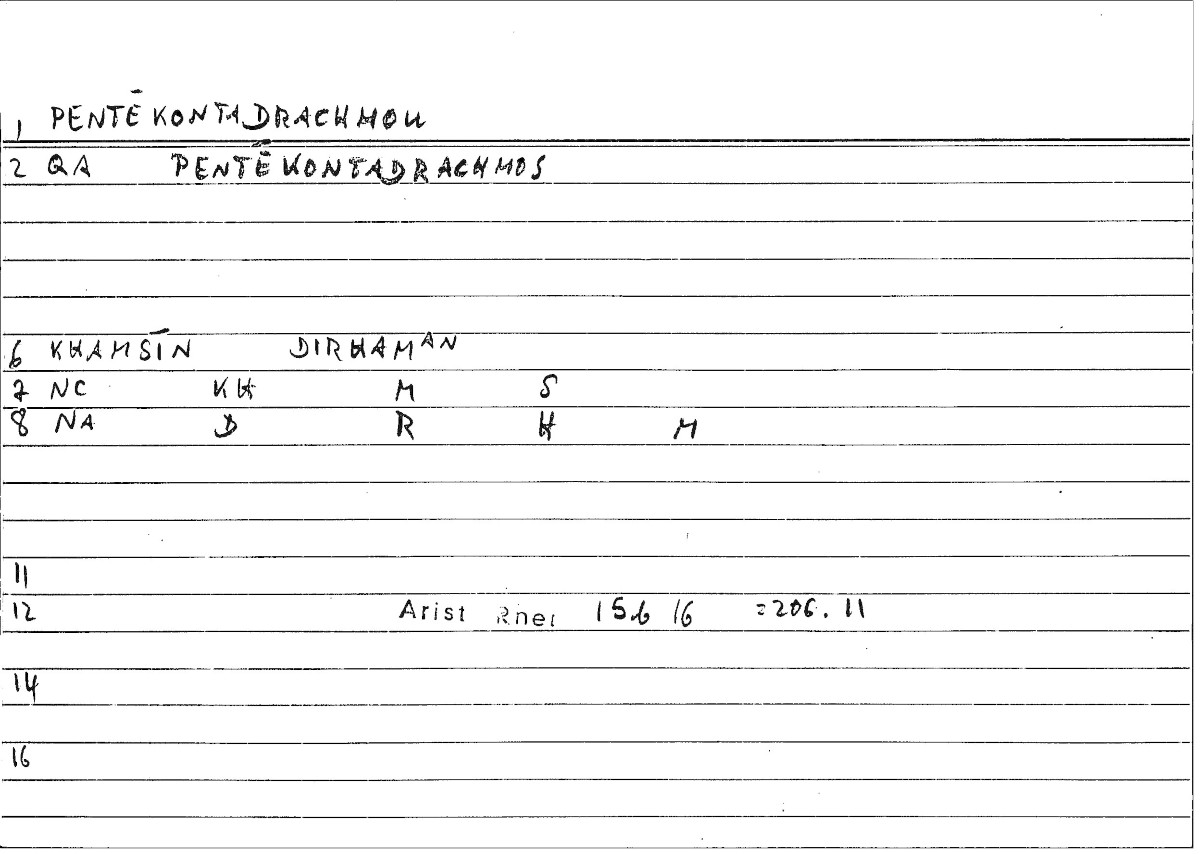 1 PENTĒKONTADRACHMOU
2 QA PENTĒKONTADRACHMOS
6 KHAMSĪN DIRHAMAN
7 NC KH M S
8 NA D R H M
11
12 Arist Rhet 15.6 16 =206.11
14
16